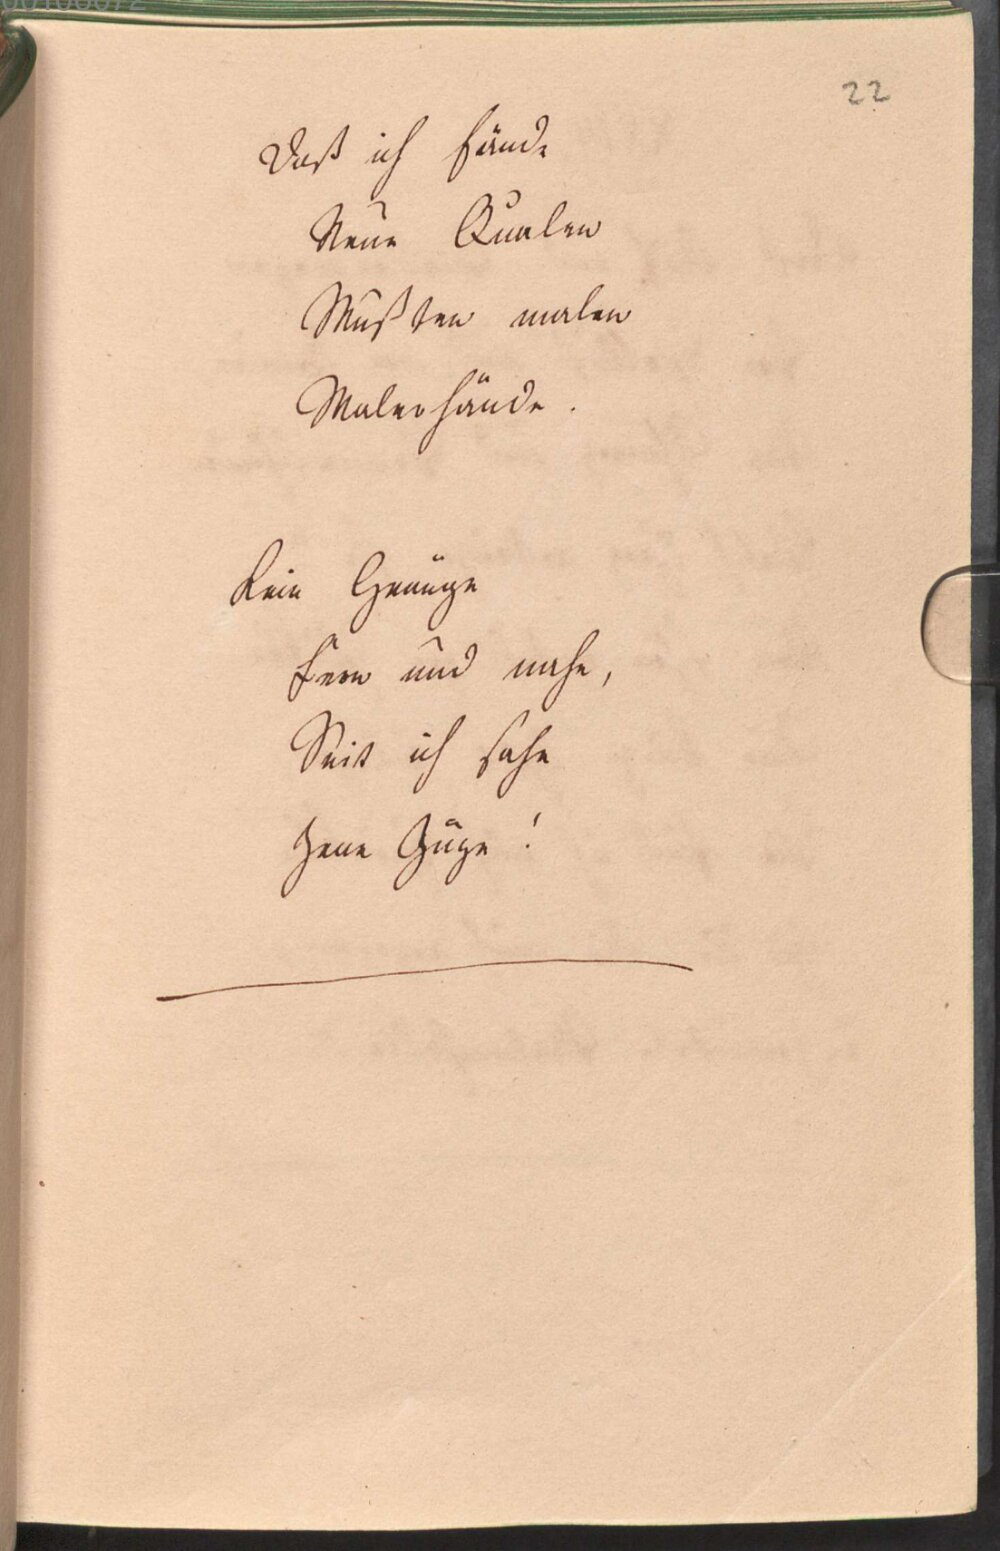 22
Daß ich fände
Neue Qualen
Mußten malen
Malerhände.
Kein Genüge
Fern und nahe,
Seit ich sahe
Jene Züge!